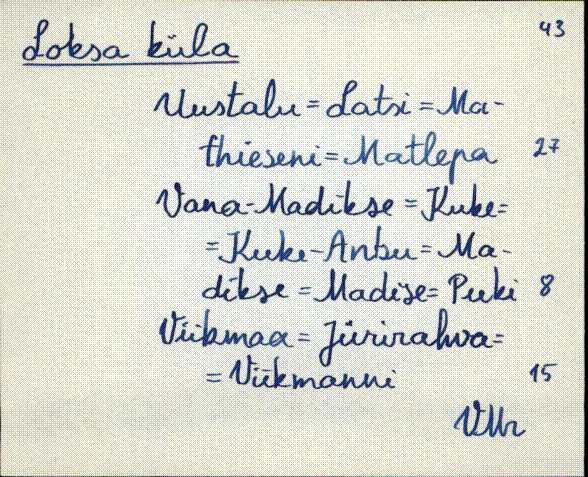 43
Loksa küla
Uustalu = Latsi = Ma-
thieseni = Matlepa 27
Vana-Madikse = Kuke =
= Kuke-Anbu = Ma-
dikse = Madise = Puki 8
Viikmaa = Jürirahva =
= Viikmanni 15